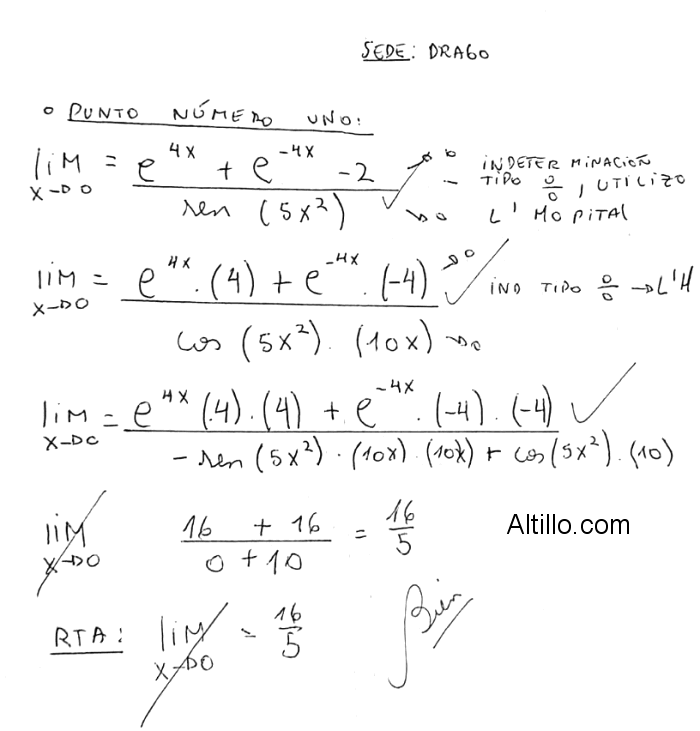 SEDE: DRAGO
o PUNTO NÚMERO UNO:
lim x→0 = (e^4x + e^-4x - 2) / (sen (5x²)) →0 →0 INDETERMINACIÓN TIPO 0/0, UTILIZO L'HOPITAL
lim x→0 = (e^4x . (4) + e^-4x . (-4)) / (cos (5x²) . (10x)) →0 →0 IND TIPO 0/0 → L'H
lim x→0 = (e^4x (4) . (4) + e^-4x . (-4) . (-4)) / (- sen (5x²) . (10x) . (10x) + cos (5x²) . (10))
lim x→0 (16 + 16) / (0 + 10) = 16/5
Altillo.com
RTA: lim x→0 = 16/5
Bien